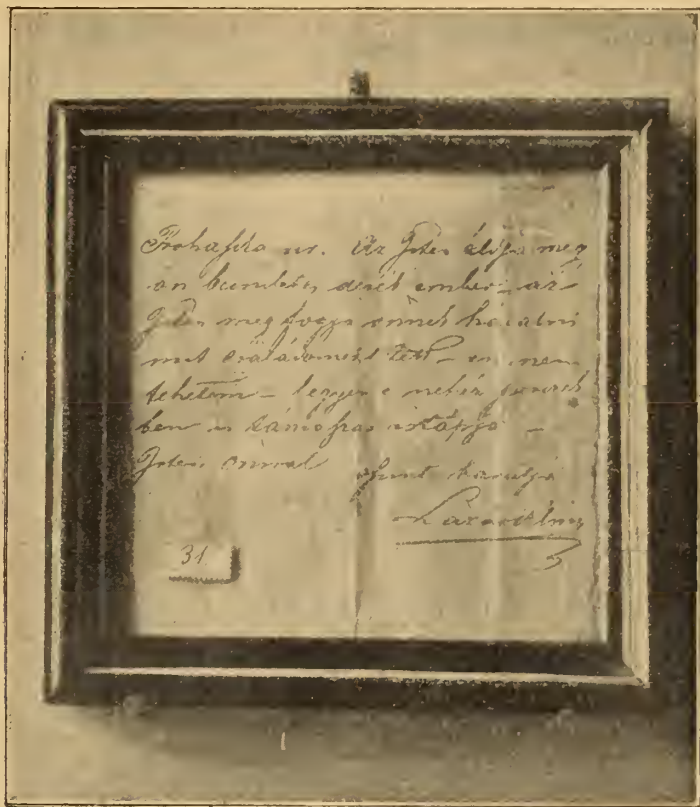 Prohaszka ur. Az Isten áldja meg
ön becsületes derék ember az
Isten meg fogja önnek hálálni
mit családomért tett – én nem
tehetem – legyen e nehéz
ben is támasza istápja –
Isten önnel
barátja
Lázár Vilmos
31